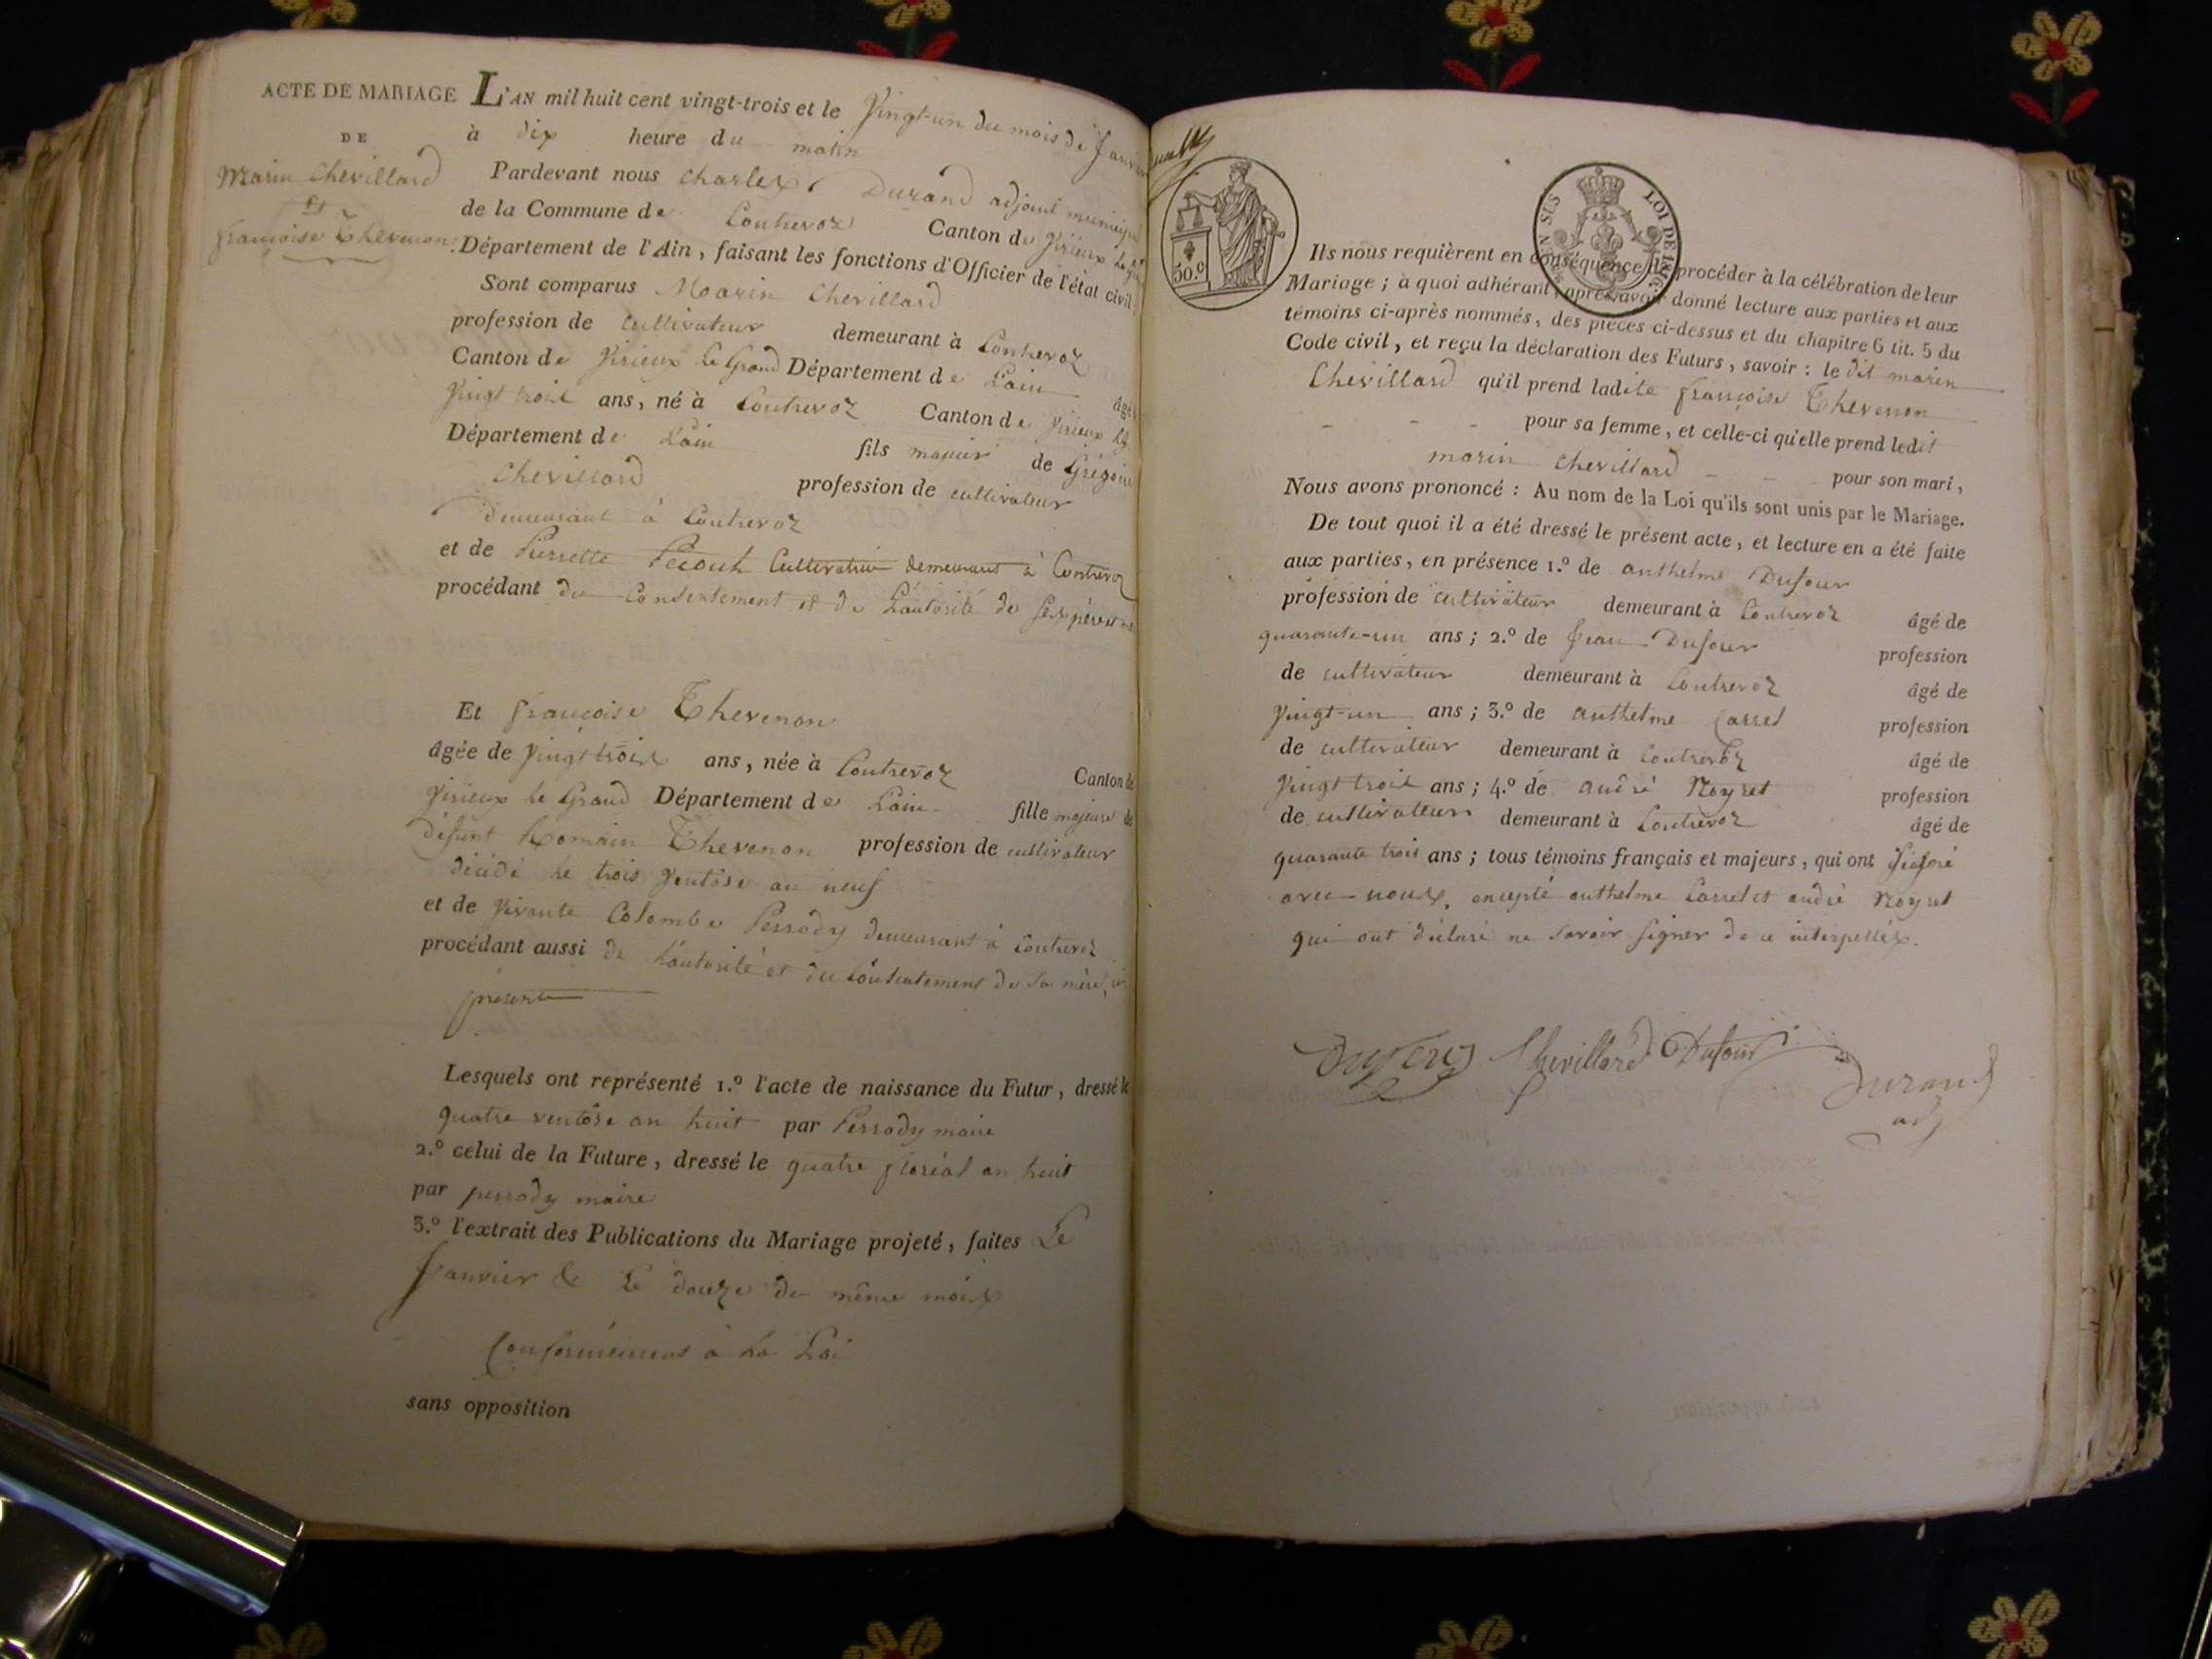 ACTE DE MARIAGE
DE
Marin Chevillard
et
françoise Thevenon
L'AN mil huit cent vingt-trois et le Vingt-un du mois de Janvier
à dix heure du matin
Pardevant nous Charles Durand adjoint municipal
de la Commune de Contrevoz Canton de Virieux le gd
Département de l'Ain, faisant les fonctions d'Officier de l'état civil
Sont comparus Marin Chevillard
profession de Cultivateur demeurant à Contrevoz
Canton de Virieux Le Grand Département de L'ain âgé
Vingt trois ans, né à Contrevoz Canton de Virieux Lg
Département de L'ain fils majeur de Grégoire
Chevillard profession de cultivateur
demeurant à Contrevoz
et de Pierrette Cultivatrice demeurant à Contrevoz
procédant du Consentement et de L'autorité de Ses père et
Et françoise Thevenon
âgée de Vingt trois ans, née à Contrevoz Canton de
Virieux Le Grand Département de Lain fille majeure de
défunt Romain Thevenon profession de cultivateur
décédé le trois Ventôse an neuf
et de Vivante Colombe Perrody demeurant à Contrevoz
procédant aussi de L'autorité et du Consentement de Sa mère, ici
présente
Lesquels ont représenté 1.º l'acte de naissance du Futur, dressé le
quatre ventôse an huit par Perrody maire
2.º celui de la Future, dressé le quatre floréal an huit
par perrody maire
3.º l'extrait des Publications du Mariage projeté, faites Le
Janvier & Le douze du même mois
Conformément à La Loi
sans opposition
50.c
LOI DE 1816.
Ils nous requièrent en conséquence de procéder à la célébration de leur
Mariage; à quoi adhérant, après avoir donné lecture aux parties et aux
témoins ci-après nommés, des pièces ci-dessus et du chapitre 6 tit. 5 du
Code civil, et reçu la déclaration des Futurs, savoir : le dit marin
Chevillard qu'il prend ladite françoise Thevenon
- - - pour sa femme, et celle-ci qu'elle prend ledit
marin Chevillard - - pour son mari,
Nous avons prononcé : Au nom de la Loi qu'ils sont unis par le Mariage.
De tout quoi il a été dressé le présent acte, et lecture en a été faite
aux parties, en présence 1.º de anthelme Dufour
profession de cultivateur demeurant à Contrevoz âgé de
quarante-un ans; 2.º de Jean Dufour profession
de cultivateur demeurant à Contrevoz âgé de
Vingt-un ans; 3.º de anthelme Carrel profession
de cultivateur demeurant à Contrevoz âgé de
Vingt trois ans; 4.º de andré Noyret profession
de cultivateur demeurant à Contrevoz âgé de
quarante trois ans; tous témoins français et majeurs, qui ont Signé
avec nous, excepté anthelme Carrel et andré Noyret
qui ont déclaré ne Savoir Signer de ce interpellés.
Dufour Chevillard Dufour
Durand
adj